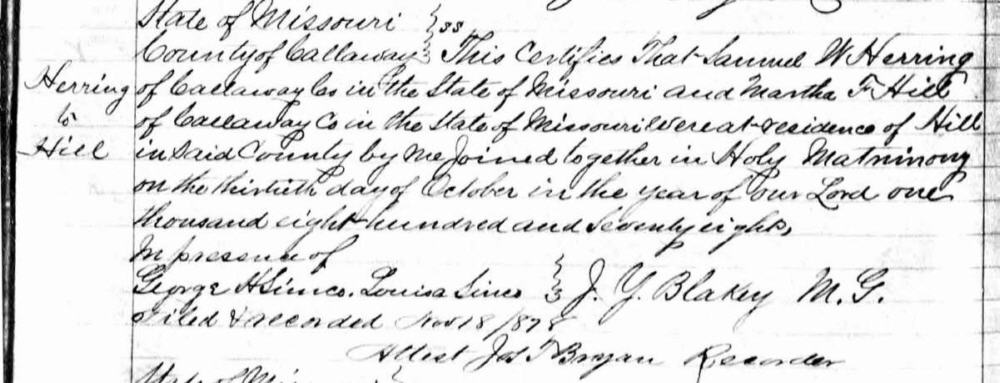 State of Missouri } ss
County of Callaway } This Certifies That Samuel W Herring
Herring
of Callaway Co in the State of Missouri and Martha F Hill
to
of Callaway Co in the State of Missouri Were at residence of Hill
Hill
in Said County by me Joined together in Holy Matrimony
on the thirtieth day of October in the year of our Lord one
thousand eight hundred and seventy eight,
In presence of
George H Simco. Louisa Sines } J. Y. Blakey M. G.
Filed & recorded Nov 18 1878
Attest Jas T Bryan Recorder
State of